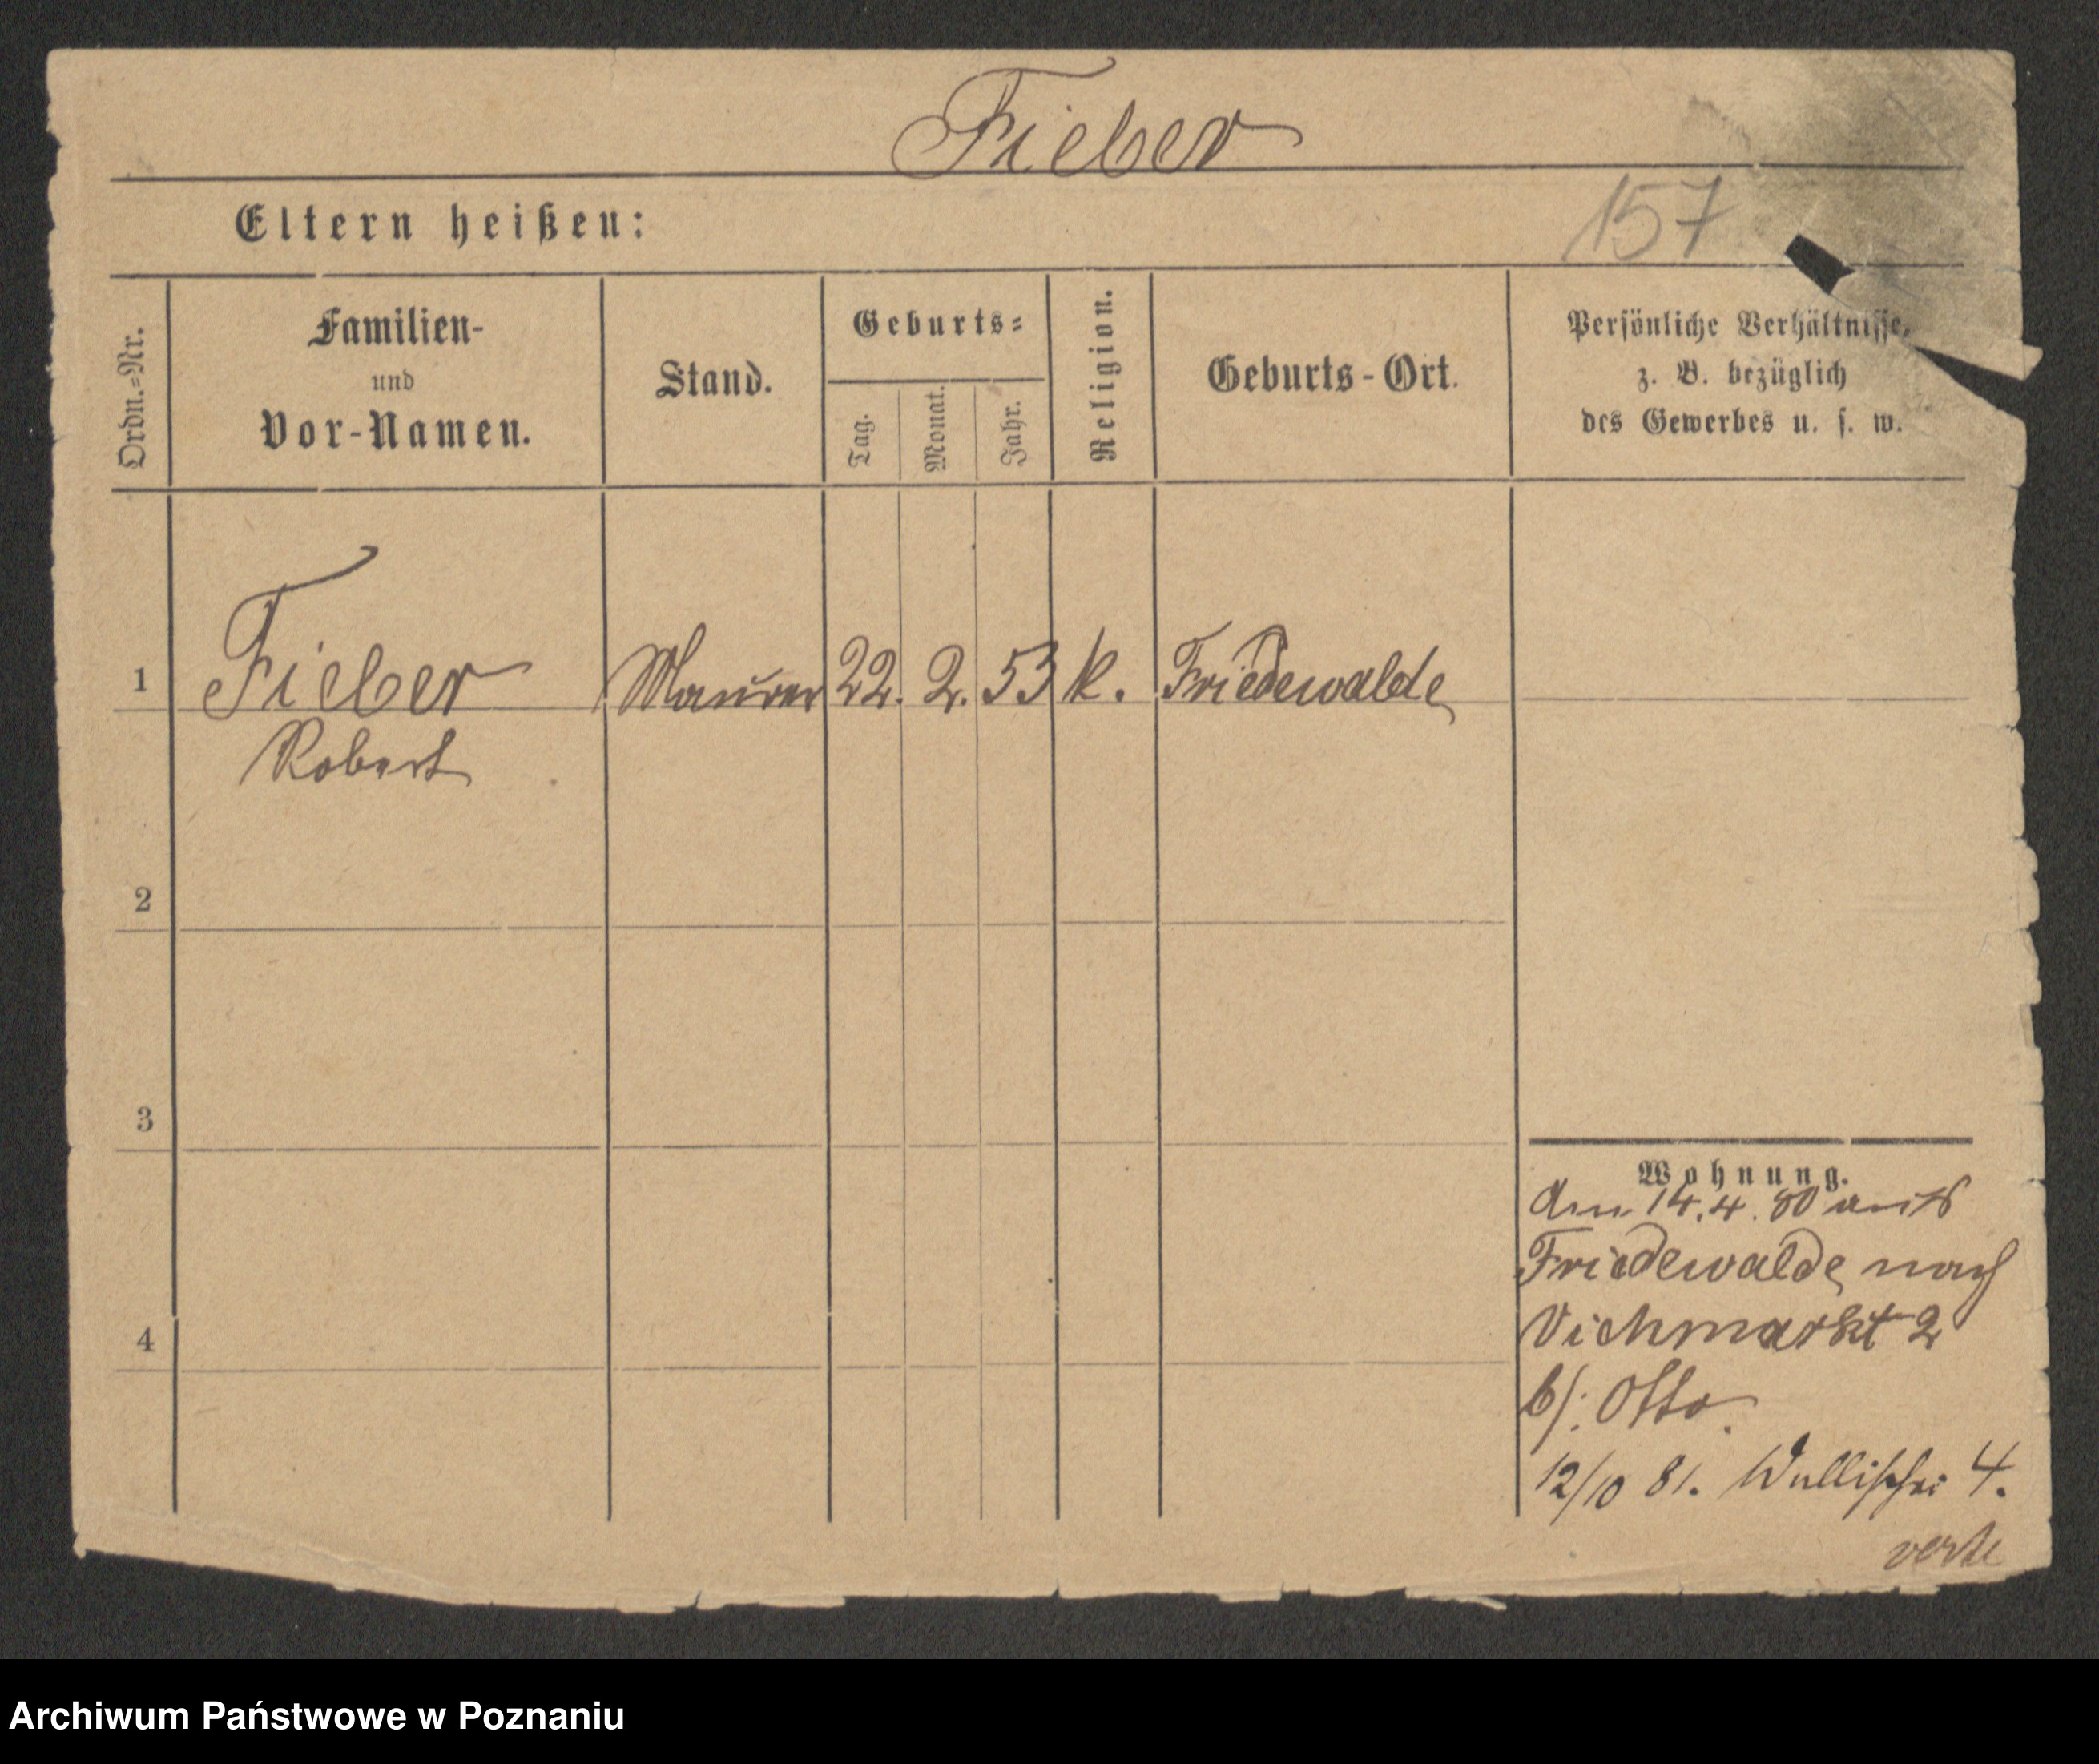 Fieber
Eltern heißen:
157
Ordn.-Nr.
Familien-
und
Vor-Namen.
Stand.
Geburts-
Tag.
Monat.
Jahr.
Religion.
Geburts-Ort.
Persönliche Verhältnisse,
z. B. bezüglich
des Gewerbes u. s. w.
1 Fieber Maurer 22. 2. 53 k. Friedewalde
Robert
2
3
4
Wohnung.
Am 14.4.80 aus
Friedewalde nach
Viehmarkt 2
b/: Otto.
12/10 81. Wallischei 4.
verte
Archiwum Państwowe w Poznaniu